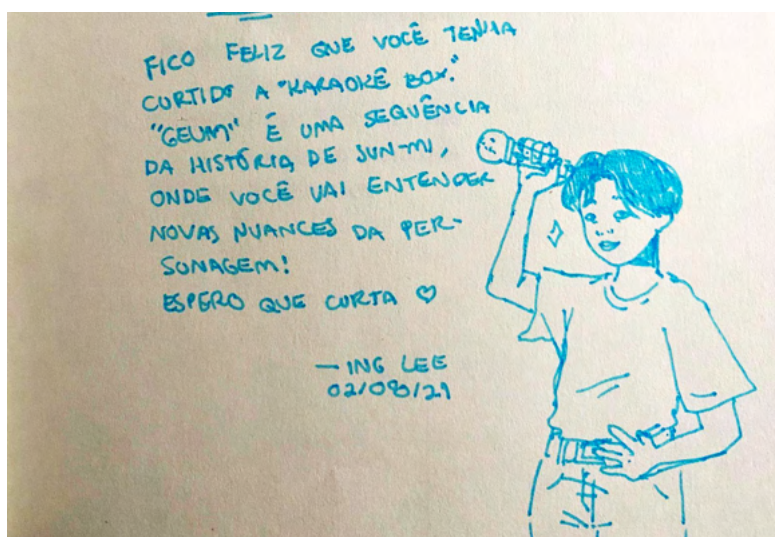 FICO FELIZ QUE VOCÊ TENHA
CURTIDO A "KARAOKÊ BOX".
"GEUM" É UMA SEQUÊNCIA
DA HISTÓRIA DE JUN-MI,
ONDE VOCÊ VAI ENTENDER
NOVAS NUANCES DA PER-
SONAGEM!
ESPERO QUE CURTA ♡
— ING LEE
02/08/21